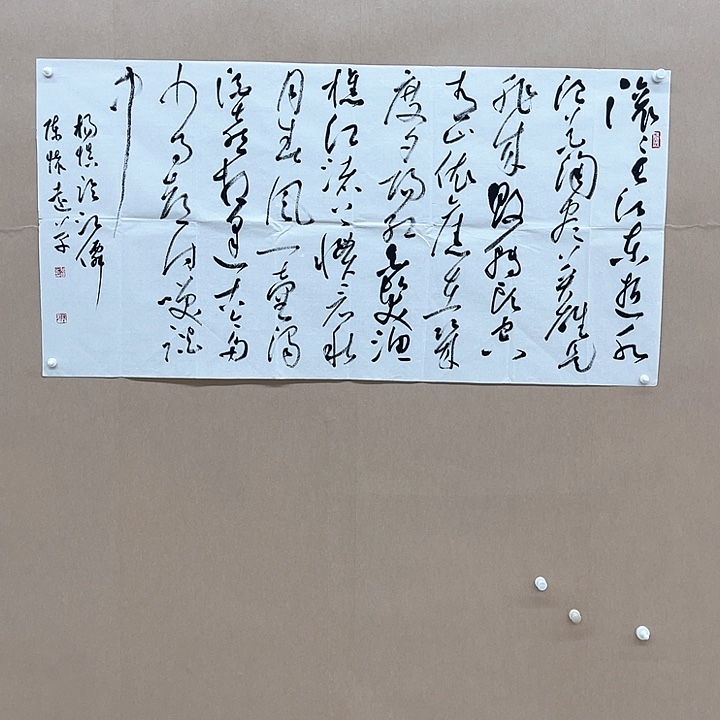 滚々长江东逝水
浪花淘尽英雄是
非成败转头空
青山依旧在几
度夕阳红白发渔
樵江渚上惯看秋
月春风一壶浊
酒喜相逢古今多
少事都付笑谈
中
杨慎临江仙
陈怀远草